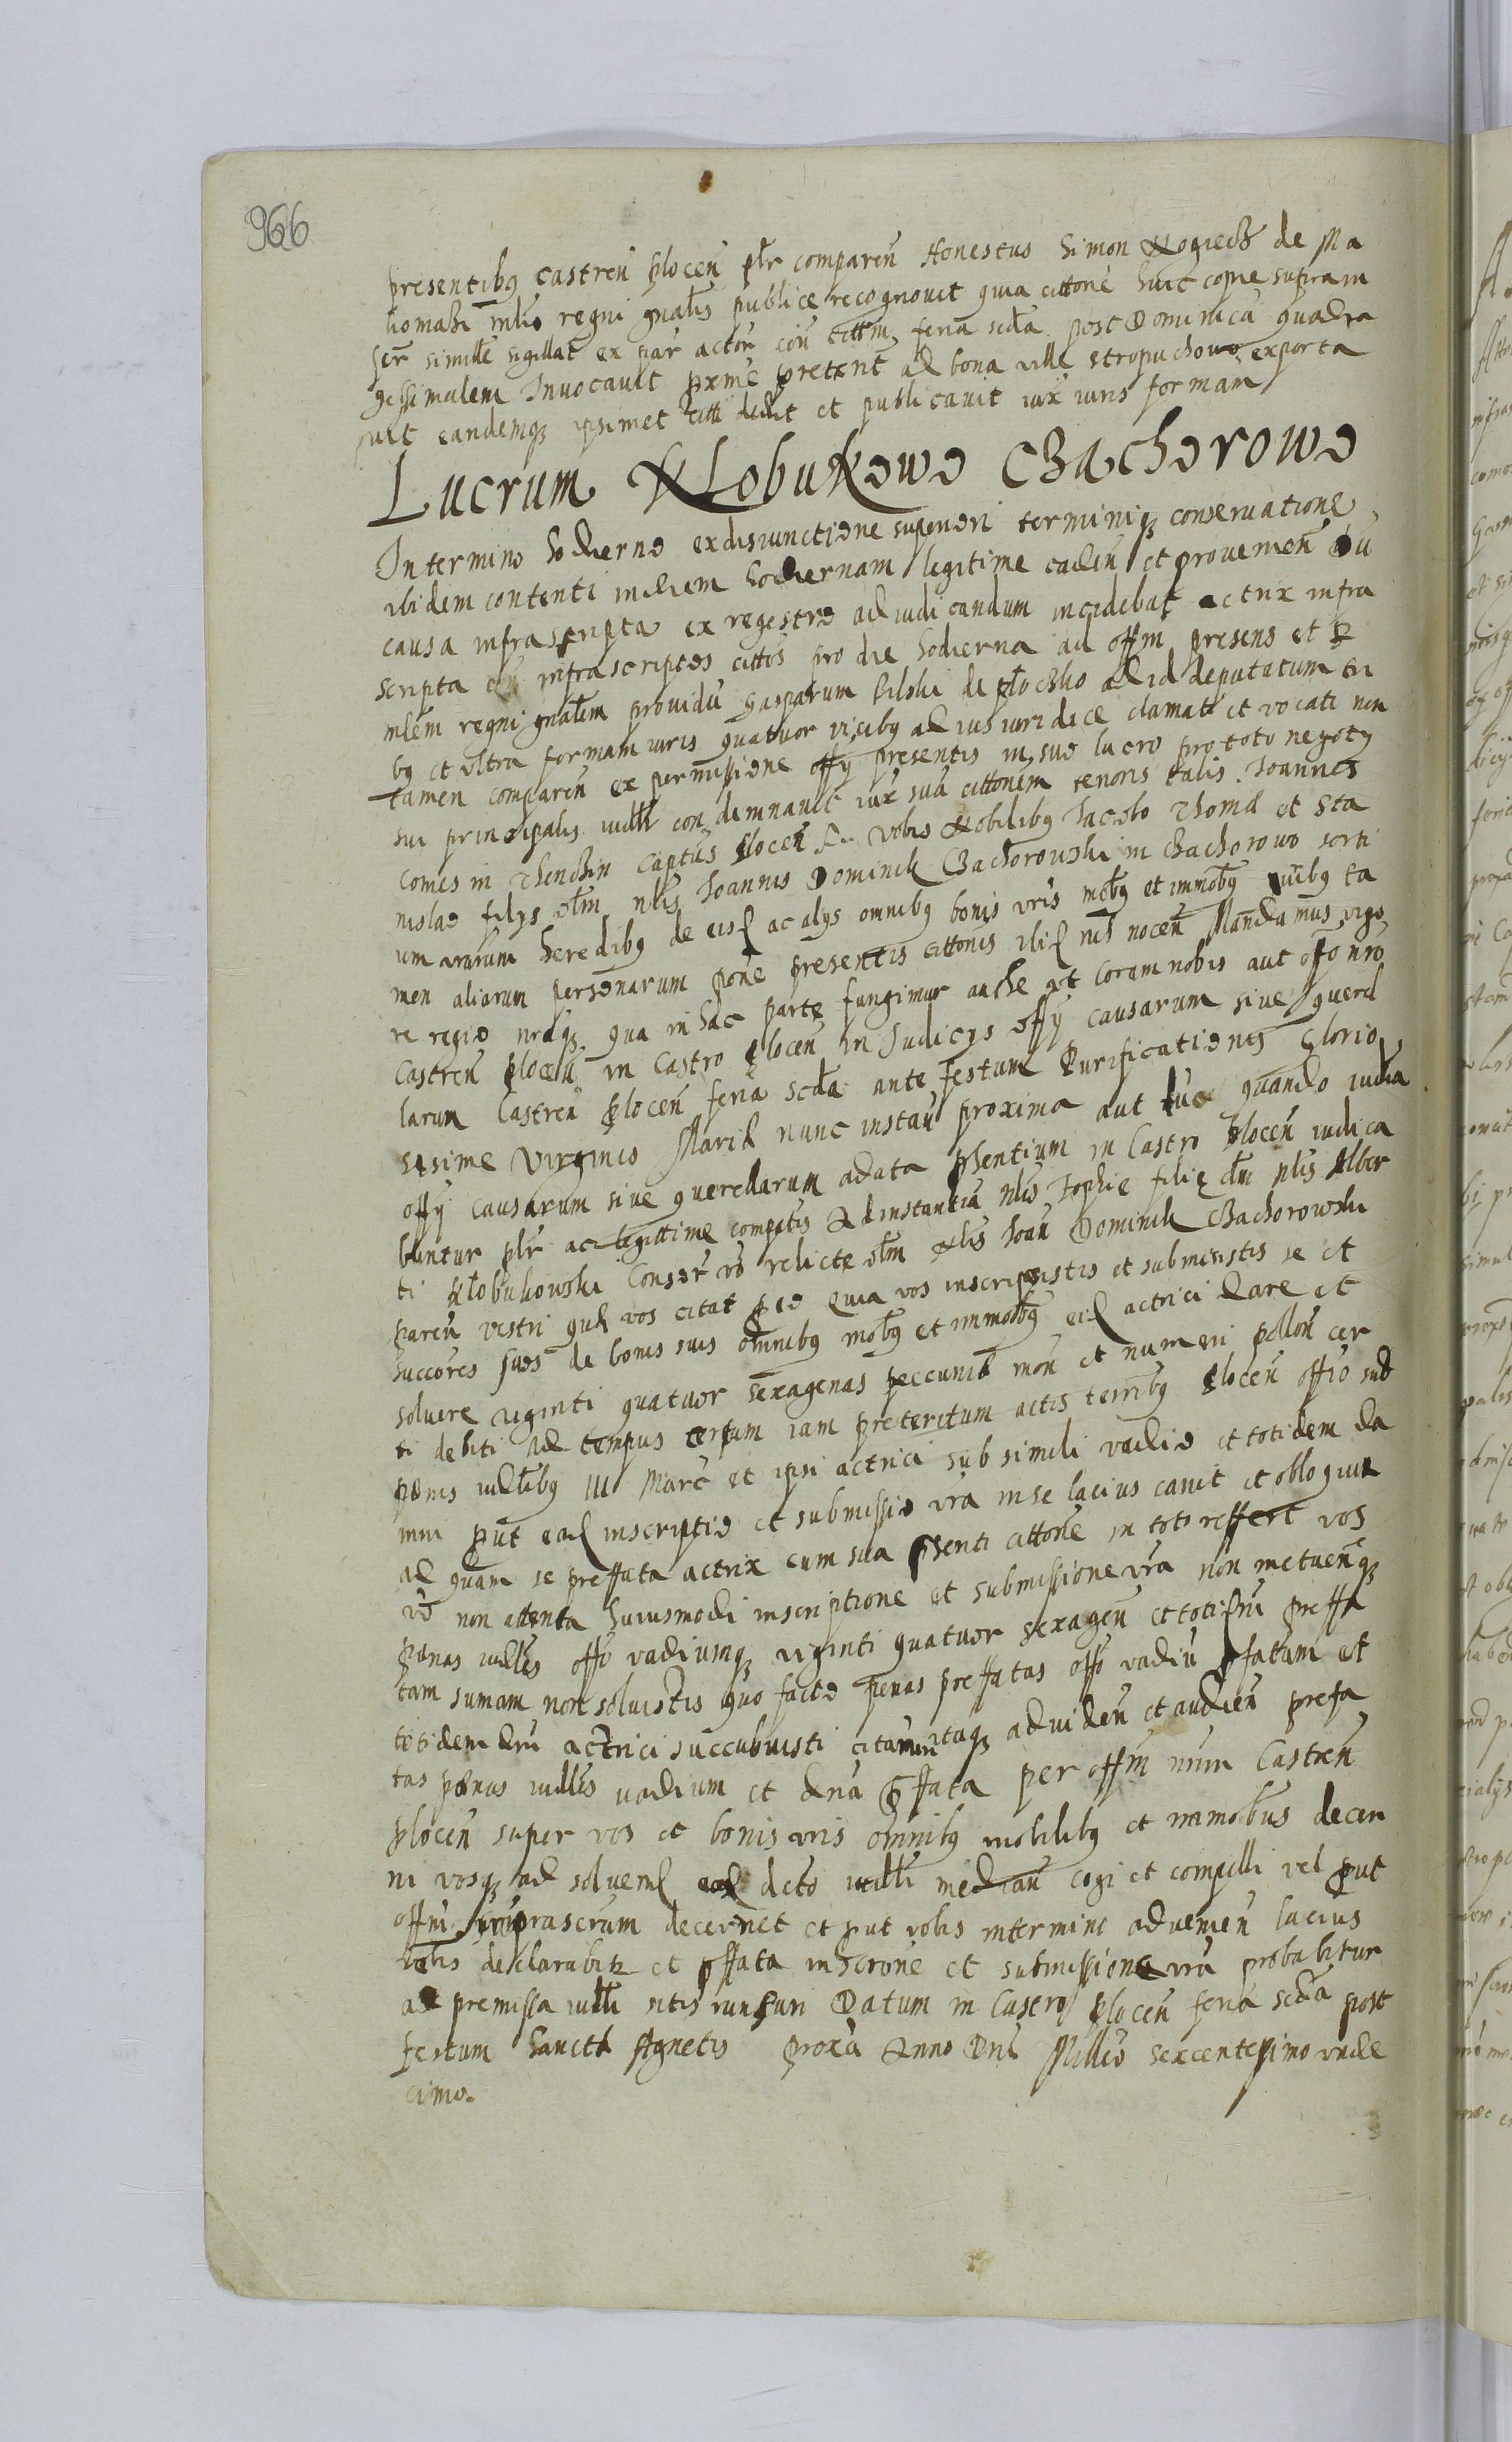 966
presentibꝫ Castreñ plocen̄ plr̄ compareñ Honestus Simon Kogiecz de Ma
liomazi mlis regni gnalis publice recognouit quia cittone huic copie suprain
ser simille sigillat ex par actor coñ cittm feria scda post Dominicā quadra
gessimalem Inuocauit pxme preterit ad bona ville stropuchowo exporta
uit eandemqꝫ ipsimet citti dedit et publicauit iux iuris formam
Lucrum Klobukowo CZachorowo
In termino hodierno exdisiunctione superiori terminiqꝫ conseruatione
ibidem contenti indiem hodiernam legitime caden et prouenien Dū
causa infrascripta ex regestro adiudicandum incidebat actrix infra
scripta infrascriptos cittos pro die hodierna ad offm presens et P
mlem regni gnalem prouidū Gasparum Bilski de plochko ad id deputatum tri
bꝫ et ultra formam iuris quatuor vicibꝫ ad ius iuridice clamati et vocati non
tamen compareñ ex permissione offÿ presentis in suo lucro pro toto negotÿ
sui principalis iudlr condemnauit iux suā cittonem tenoris talis. Joannes
Comes in Thenchin Captūs plocen̄ &c vobis Nobilibꝫ Jacobo Thomæ et Sta
nislao filÿs olm nlis Joannis Dominik CZachorowski in CZachorowo sorti
um vrarum heredibꝫ de eisd ac alÿs omnibꝫ bonis vris mobꝫ et immobꝫ iuribꝫ ta
men aliarum personarum pone presentis cittonis ibid nil nocen̄ Mandamus vigo
re regio nraqꝫ qua in hac parte fungimur authe ut coram nobis aut offo nro
Castren̄ plocen̄ in Castro plocen̄ in Judicÿs offÿ causarum siue querel
larum Castren̄ plocen̄ feria scda ante festum Purificationis Glorio
sissime Virginis Mariæ nunc instan̄ proxima aut tuc quando iudia
offÿ causarum siue querellarum adata pñsentium in Castro plocen̄ iudica
buntur plr ac legittime compatis Ad instantiā nlis Zophie filie olm nlis Alber
ti Klobukowski Consor vo relicte olm Nlis Joan Dominik CZachorowski
paren̄ vestri que vos citat pro eo Quia vos inscripsistis et submisistis se et
succores suos de bonis suis omnibꝫ mobꝫ et immobꝫ eid actrici dare et
soluere viginti quatuor sexagenas peccuniæ mon et numeri pollon̄ cer
ti debiti ad tempus certum iam preteritum actis terribꝫ plocen̄ offio sub
pœnis iudlibꝫ III Marc et ipsi actrici sub simili vadio et totidem da
mni put ead inscriptio et submissio vra in se lacius canit et obloquit
ad quam se preffata actrix cum sua pñsenti cittone in toto reffert vos
vo non attenta huiusmodi inscriptione et submissione vra non metuenqꝫ
pœnas iudles offo vadiumqꝫ viginti quatuor sexagen et totidm preffa
tam sumam non soluistis quo facto penas preffatas offo vadiū pfatam et
totidem dni actrici succubuisti citamini itaqꝫ ad viden et audien prefa
tas pœnas iudlles vadium et dna pffata per offm nrum Castren
plocen̄ super vos et bonis vris omnibꝫ mobilibꝫ et immobus decer
ni vosqꝫ ad soluend dcto iudli median cogi et compelli vel put
offm suprascrum decernet et put vobis intermino aduenien lacius
declarabitr et pffata inscrone et submissione vra probabitur
ad premissa iudli ntis runsuri Datum in Castro plocen̄ feria scda post
festum Sanctæ Agnetis proxa Anno Dni Millio sexcentessimo vnde
cimo.